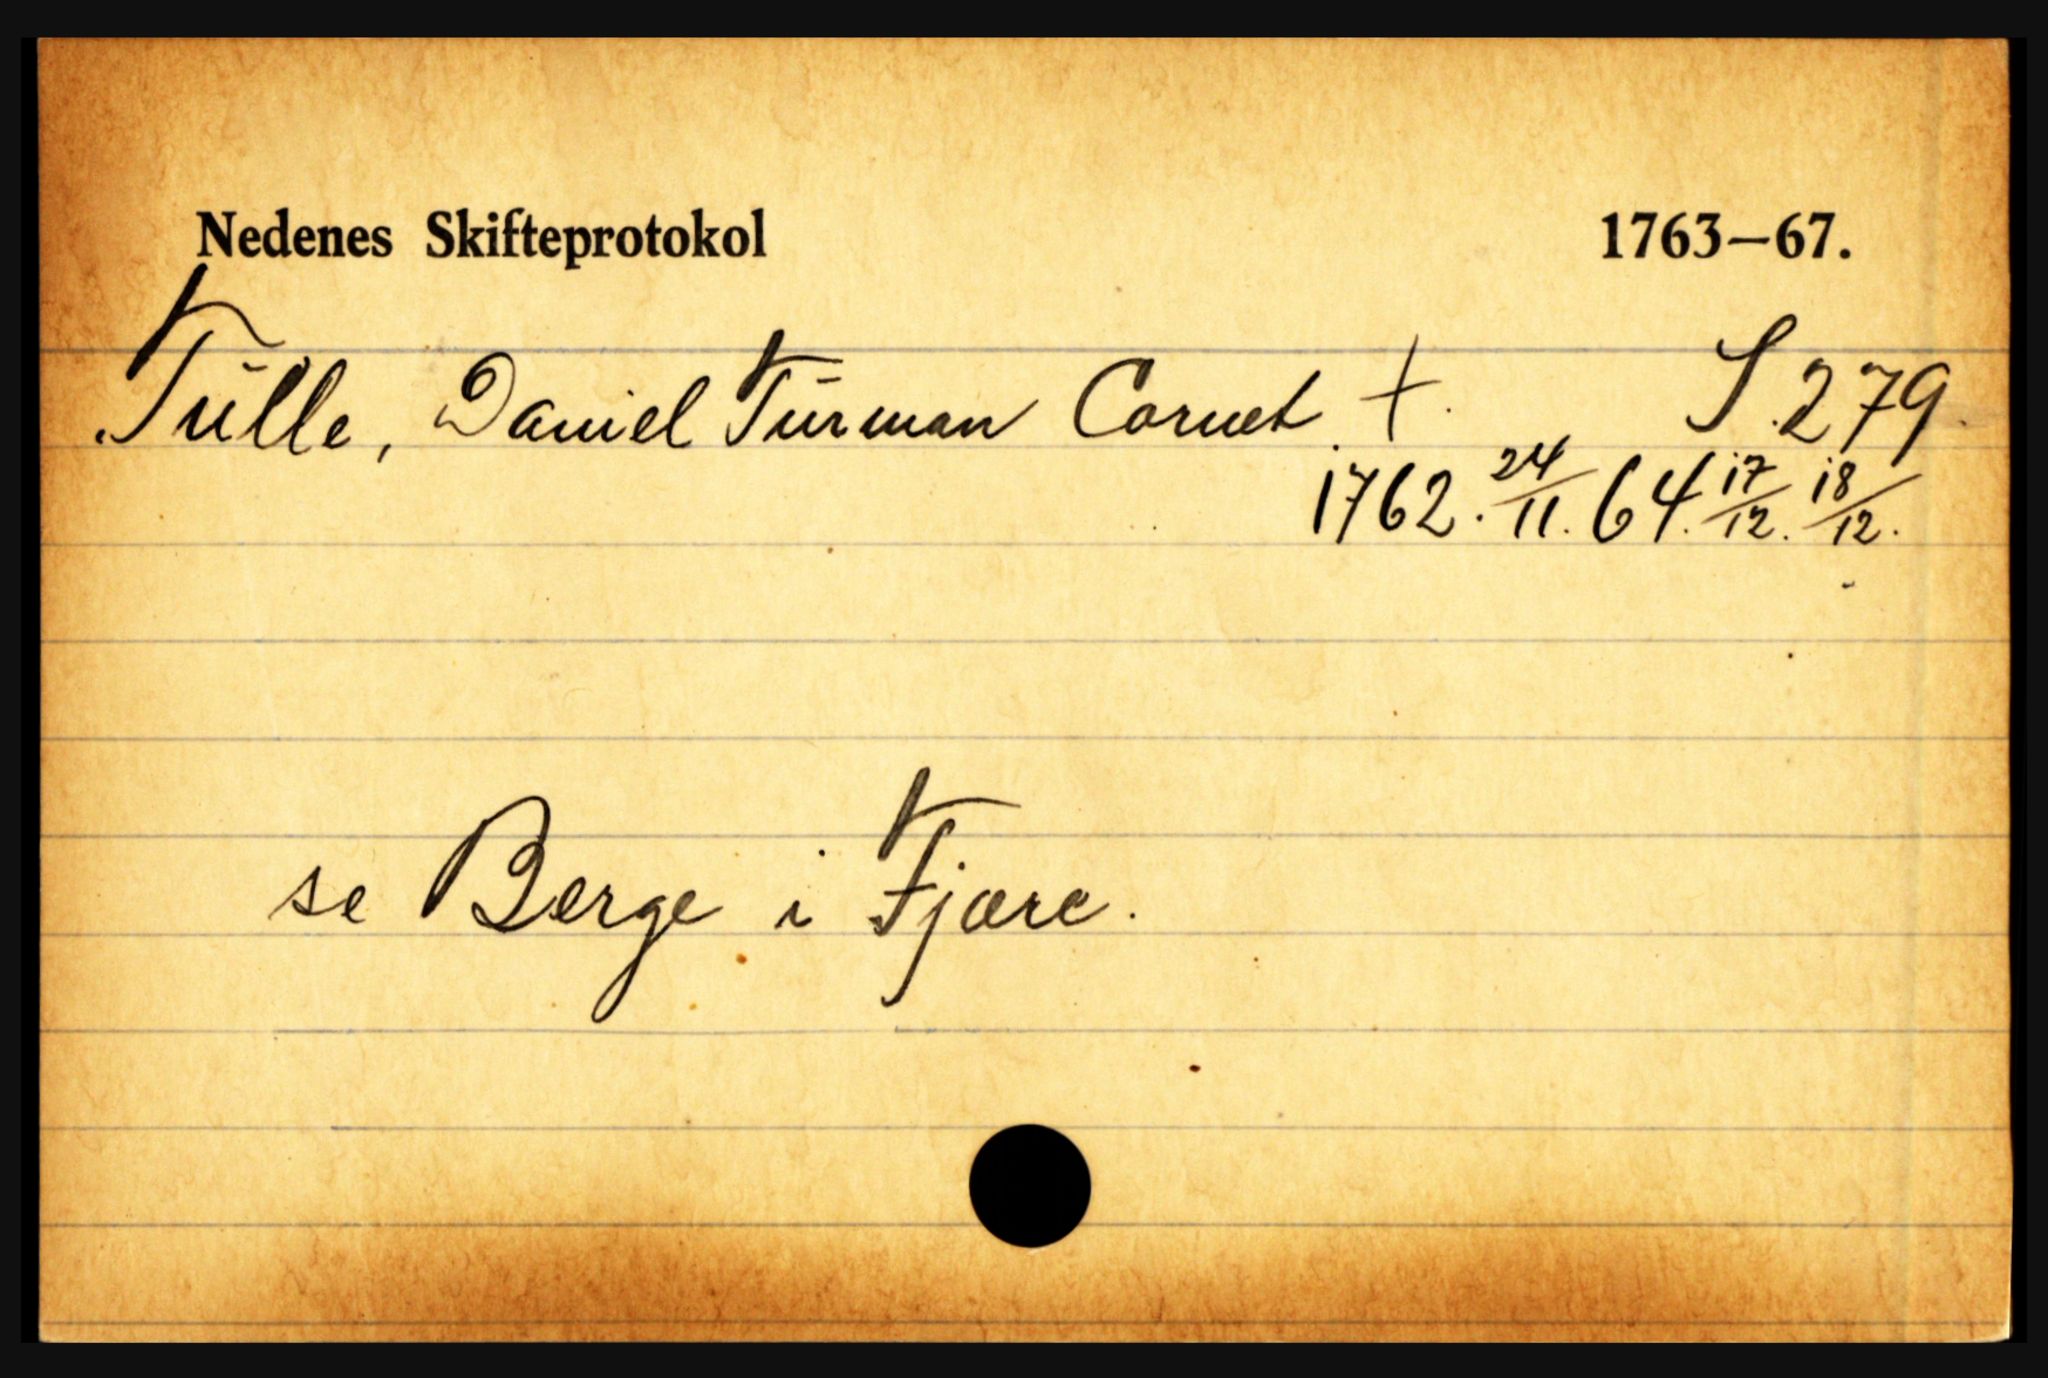 Nedenes Skifteprotokol 1763–67.
Tülle, Daniel Türman Cornet †. S. 279.
1762. 24/11. 64. 17/12. 18/12.
se Berge i Fjære.